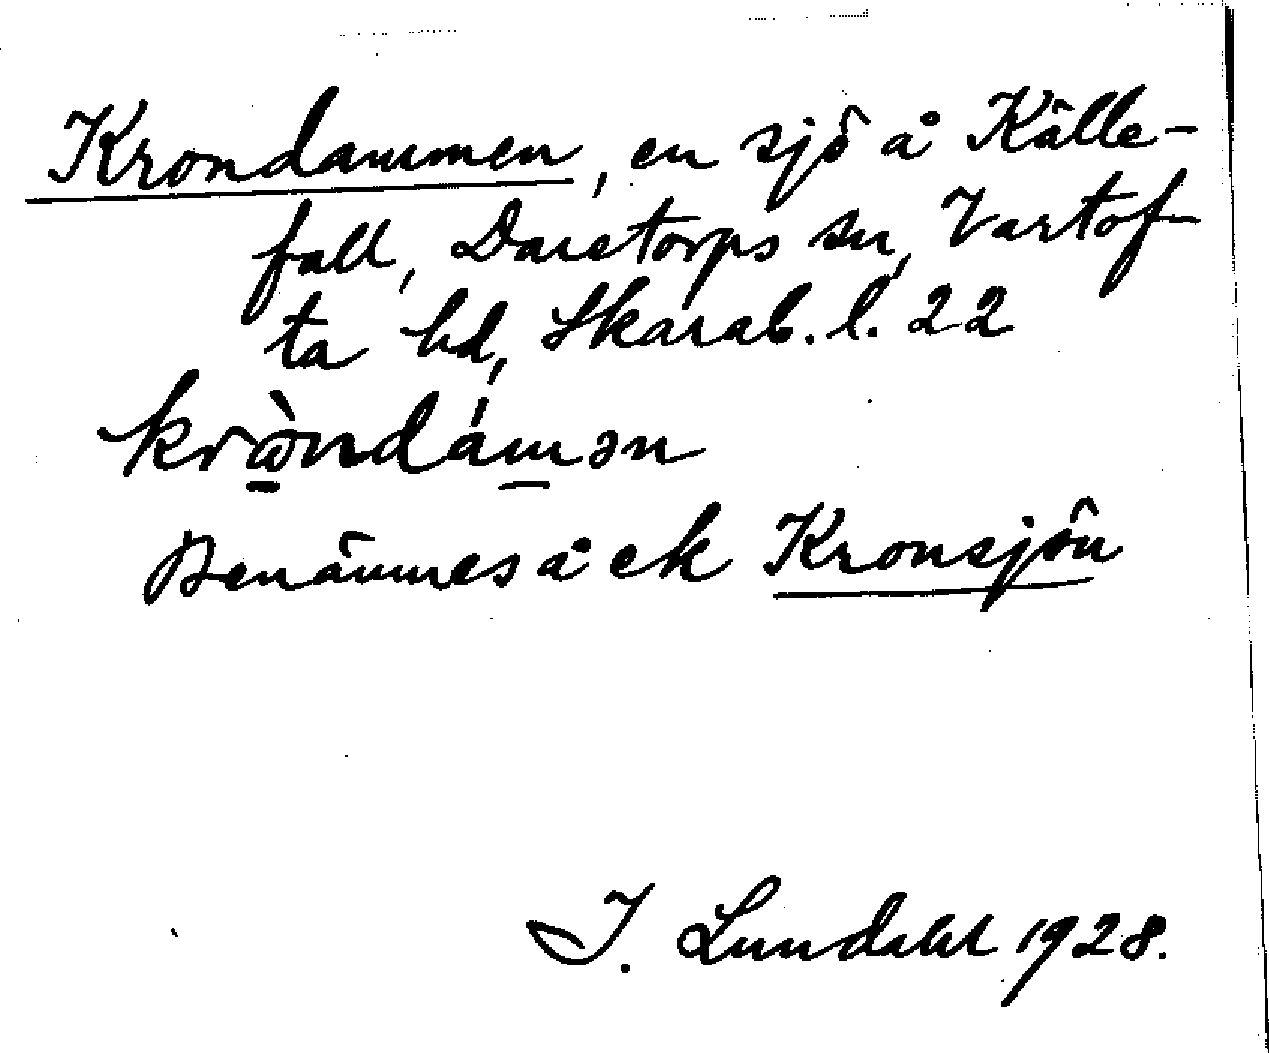 Krondammen, en sjö å Källe-
fall, Daretorps sn, Vartof-
ta hd, Skarab. l. 22
kròndámən
Benämnes å ck Kronsjön
I. Lundahl 1928.